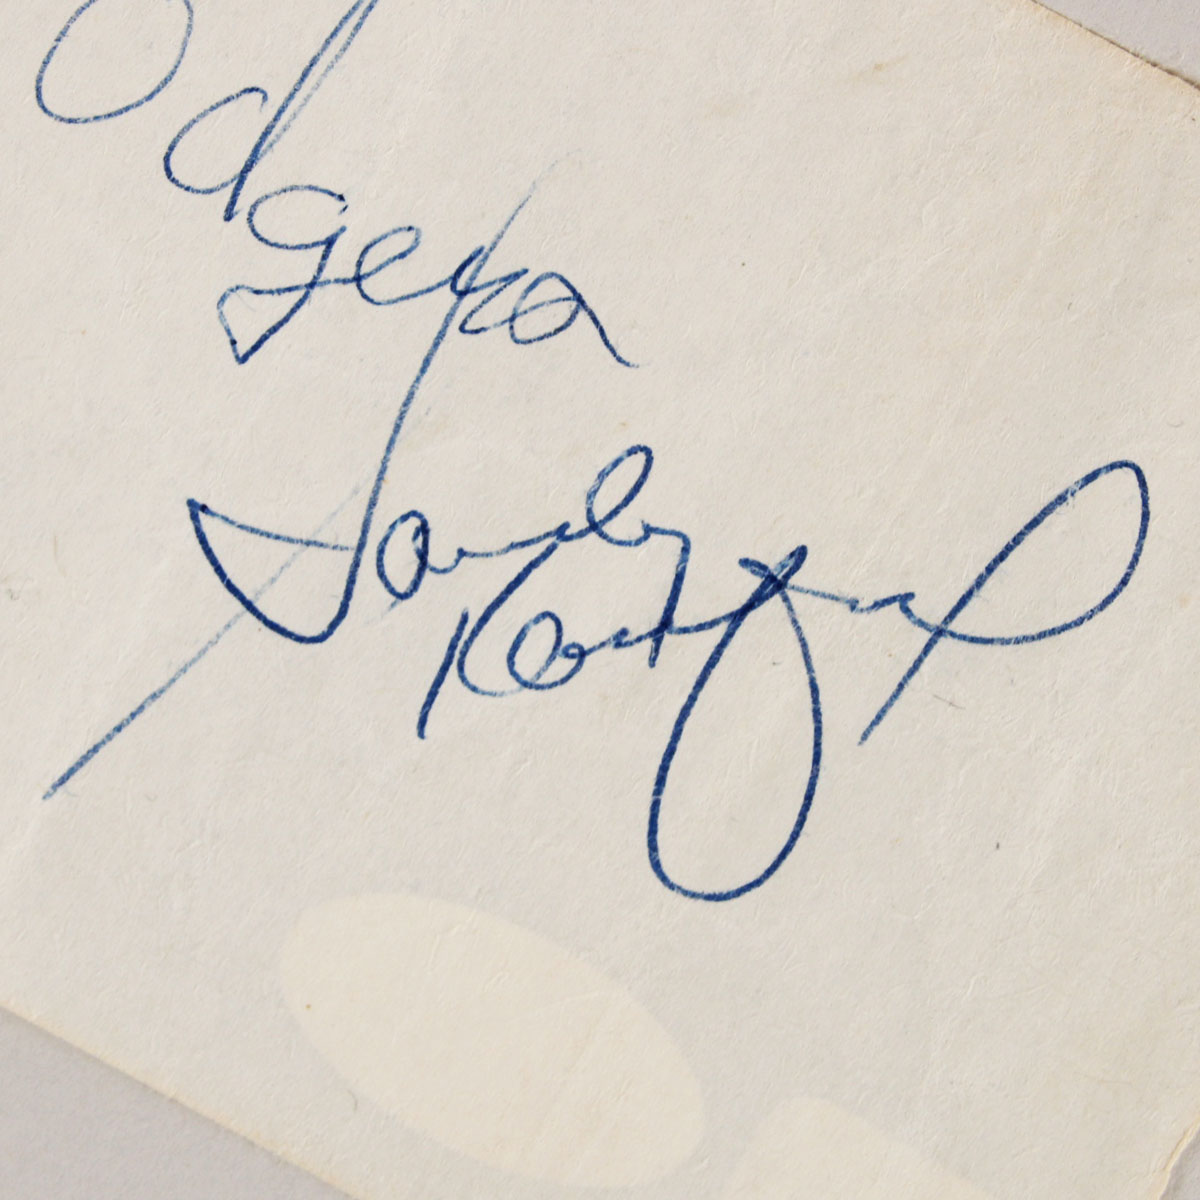 odgers
Sandy
Koufax